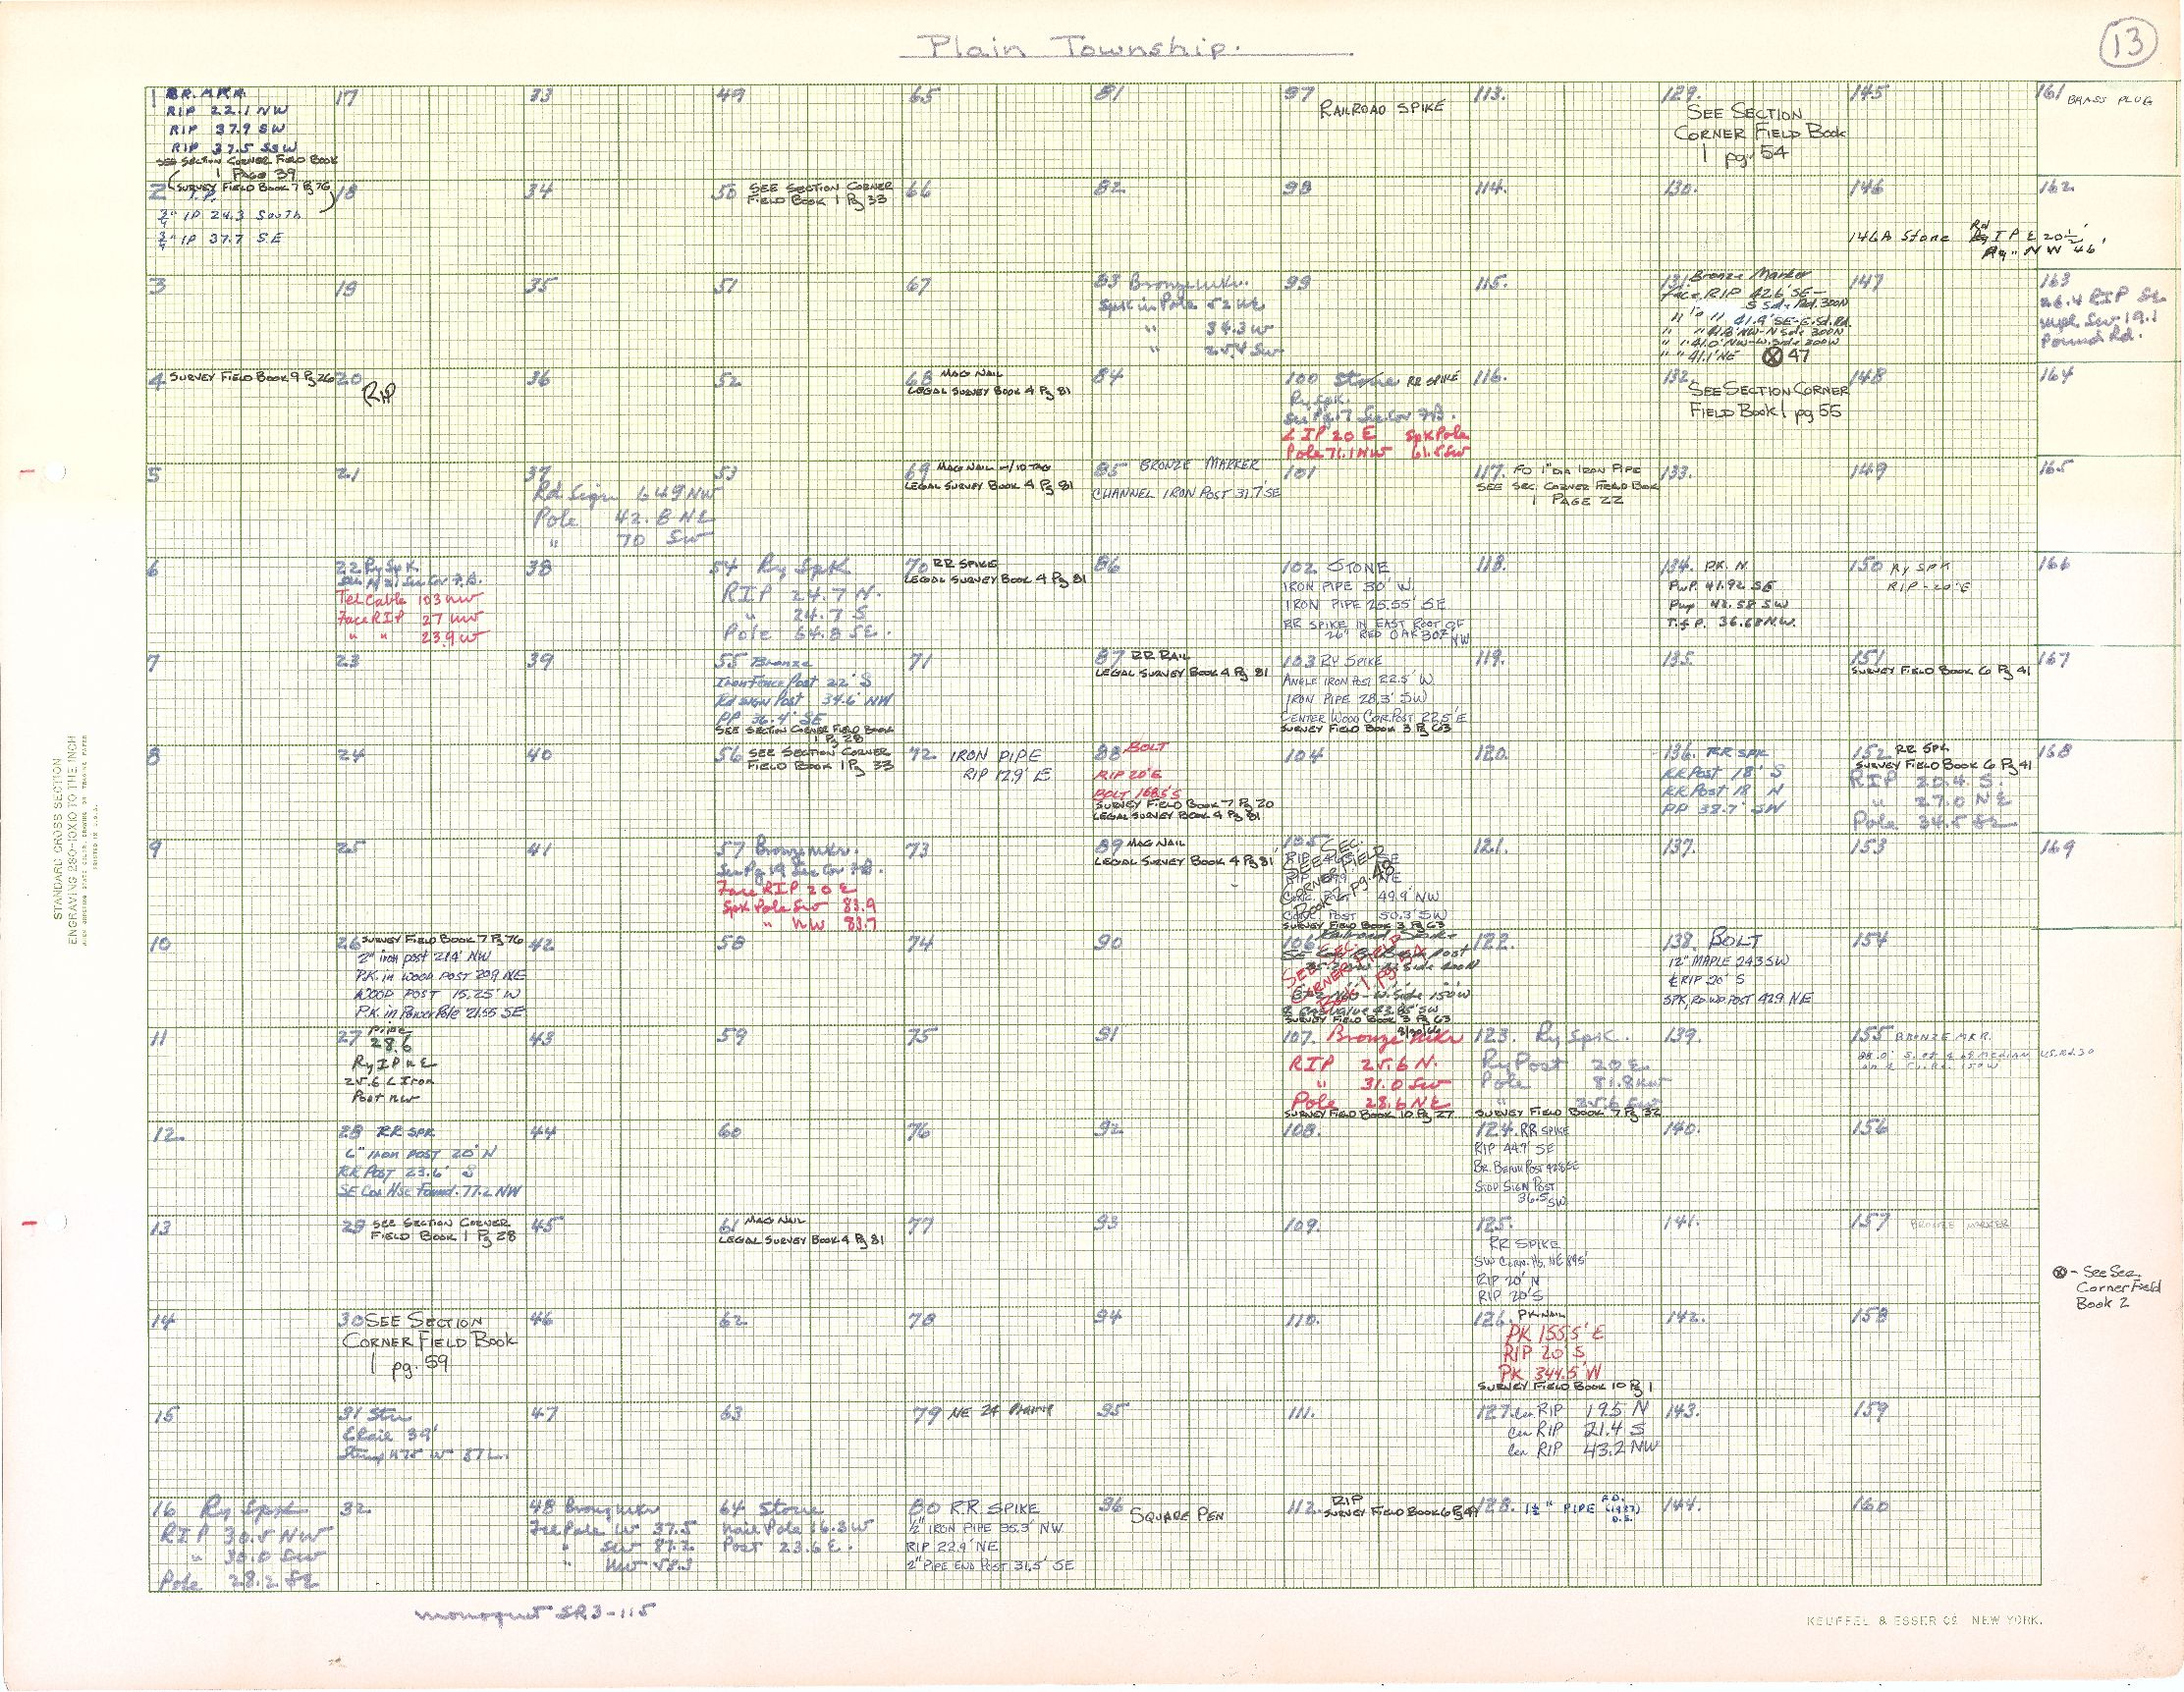 Plain Township.
13
1 BR. MKR.
RIP 22.1 NW
RIP 37.9 SW
RIP 37.5 SSW
SEE SECTION CORNER FIELD BOOK
1 PAGE 39
2 SURVEY FIELD BOOK 7 Pg 76
I.P.
3/4" IP 24.3 South
3/4" IP 37.7 S.E
3
4 SURVEY FIELD BOOK 9 Pg 26
5
6
7
8
9
10
11
12.
13
14
15
16 Ry Spk
RIP 30.5 NW
" 30.0 SW
Pole 28.2 SE
17
18
19
20
RIP
21
22 Ry Spk.
See Pg 21 Sec Cor F.B.
Tel Cable 103 NW
Face RIP 27 NW
" " 23.9 W
23
24
25
26 SURVEY FIELD BOOK 7 Pg 76
2" iron post 21.4' NW
P.K. in WOOD POST 20.9 NE
WOOD POST 15.25' W
P.K. in Power Pole 21.55 SE
27 Pipe
28.6
Ry I P N E
25.6 L Iron
Post NW
28 RR SPK
6" IRON POST 20' N
RR POST 23.6' S
SE Cor Hse Found. 77.2 NW
29 SEE SECTION CORNER
FIELD BOOK 1 Pg 28
30 SEE SECTION
CORNER FIELD BOOK
1 pg. 59
31
32
33
34
35
36
37
Rd Sign 64.9 NW
Pole 42.8 NE
" 70 SW
38
39
40
41
42
43
44
45
46
47
48 Bronz Mkr
Tel Pole W 37.5
" SW 87.2
" NW 58.3
49
50 SEE SECTION CORNER
FIELD BOOK 1 Pg 33
51
52
53
54 Ry Spk
RIP 24.7 N.
" 24.7 S
Pole 64.8 SE.
55 Bronze
Iron Fence Post 22' S
Rd SIGN Post 34.6' NW
PP 36.4' SE
SEE SECTION CORNER FIELD BOOK
1 Pg 28
56 SEE SECTION CORNER
FIELD BOOK 1 Pg 33
57 Bronz Mkr.
See Pg 19 Sec Cor F.B.
Face RIP 20 E
Spk Pole SW 83.9
" NW 83.7
58
59
60
61 MAG NAIL
LEGAL SURVEY BOOK 4 Pg 81
62
63
64 Stone
Nail Pole 16.3 W
Post 23.6 E.
65
66
67
68 MAG NAIL
LEGAL SURVEY BOOK 4 Pg 81
69 MAG NAIL w/ID TAG
LEGAL SURVEY BOOK 4 Pg 81
70 RR SPIKE
LEGAL SURVEY BOOK 4 Pg 81
71
72 IRON PIPE
RIP 12.9' E
73
74
75
76
77
78
79 NE 24
80 RR. SPIKE
1/2" IRON PIPE 35.3' NW
RIP 22.9' NE
2" PIPE END POST 31.5' SE
81
82
83 Bronze Mkr.
Spk in Pole 52 NE
" 34.3 W
" 25.4 SW
84
85 BRONZE MARKER
CHANNEL IRON POST 31.7' SE
86
87 RR RAIL
LEGAL SURVEY BOOK 4 Pg 81
88 BOLT
RIP 20' E
BOLT 168.5' S
SURVEY FIELD BOOK 7 Pg 20
LEGAL SURVEY BOOK 4 Pg 81
89 MAG NAIL
LEGAL SURVEY BOOK 4 Pg 81
90
91
92
93
94
95
96
SQUARE PEN
97
RAILROAD SPIKE
98
99
100 Stone RR SPIKE
Ry spk.
See Pg. 17 Sec Cor F.B.
L IP 20 E Spk Pole
Pole 71.1 NW 61.5 SW
101
102 STONE
IRON PIPE 30' W.
IRON PIPE 25.55' SE
RR SPIKE IN EAST ROOT OF
26" RED OAK 30.7' NW
103 RY SPIKE
ANGLE IRON POST 22.5' W
IRON PIPE 28.3' SW
CENTER WOOD COR. POST 22.5' E
SURVEY FIELD BOOK 3 Pg 63
104
105 SEE SEC.
CORNER FIELD
Book 2 pg. 48
CONC. POST 49.9' NW
CONC. POST 50.3' SW
SURVEY FIELD BOOK 3 Pg 63
106 Railroad Spike
SEE SEC.
CORNER FIELD
Book 1 pg. 54
SURVEY FIELD BOOK 3 Pg 63
107. Bronze Mkr
RIP 25.6 N.
" 31.0 SW
Pole 28.6 NE
SURVEY FIELD BOOK 10 Pg 27
108.
109.
110.
111.
112. RIP
SURVEY FIELD BOOK 6 Pg 49
113.
114.
115.
116.
117. FD 1" DIA IRON PIPE
SEE SEC. CORNER FIELD BOOK
1 PAGE 22
118.
119.
120.
121.
122.
123. Ry Spk.
Ry Post 20 E.
Pole 81.8 NW
" 35.6 SW
SURVEY FIELD BOOK 7 Pg 32
124. RR SPIKE
RIP 44.7' SE
BR. BEAM POST 42.8 SE
STOP SIGN POST
36.5 SW
125.
RR SPIKE
SW CORN. HS. NE 89.5'
RIP 20' N
RIP 20' S
126. PK NAIL
PK 155.5' E
RIP 20' S
PK 344.5' W
SURVEY FIELD BOOK 10 Pg 1
127. Cen RIP 19.5 N
Cen RIP 21.4 S
Cen RIP 43.2 NW
128. 1 1/2" PIPE
129.
SEE SECTION
CORNER FIELD BOOK
1 pg. 54
130.
131. Bronze Marker
Face RIP 42.6' SE -
S Sd. Rd. 300N
" " " 41.9' SE-E. Sd. Rd.
" " 41.8' NW-N Side 300N
" " 41.0' NW-W. Side 200W
" " 41.1' NE ⊗ 47
132.
SEE SECTION CORNER
FIELD BOOK 1 pg 55
133.
134. PK. N.
PWP. 41.92 SE
PWP 43.58 SW
T.S.P. 36.68 N.W.
135.
136. RR SPK
RR POST 18' S
RR POST 18 N
PP 38.7' SW
137.
138. BOLT
12" MAPLE 24.3 SW
₵ RIP 20' S
SPK, RD WD POST 42.9 NE
139.
140.
141.
142.
143.
144.
145
146
146A Stone
147
148
149
150 Ry SPK
RIP-20' E
151
SURVEY FIELD BOOK 6 Pg 41
152 RR SPK
SURVEY FIELD BOOK 6 Pg 41
RIP 20.4 S.
" 27.0 NE
Pole 34.5 SE
153
154
155 BRONZE MKR.
156
157 BRONZE MARKER
158
159
160
161 BRASS PLUG
162
163
26.4 RIP SE
mpl. SW 19.1
Pound Rd.
164
165
166
167
168
169
⊗ - See Sec.
Corner Field
Book 2
monogut SR3-115
STANDARD CROSS SECTION
ENGRAVING 280-10X10 TO THE INCH
KEUFFEL & ESSER CO. NEW YORK.